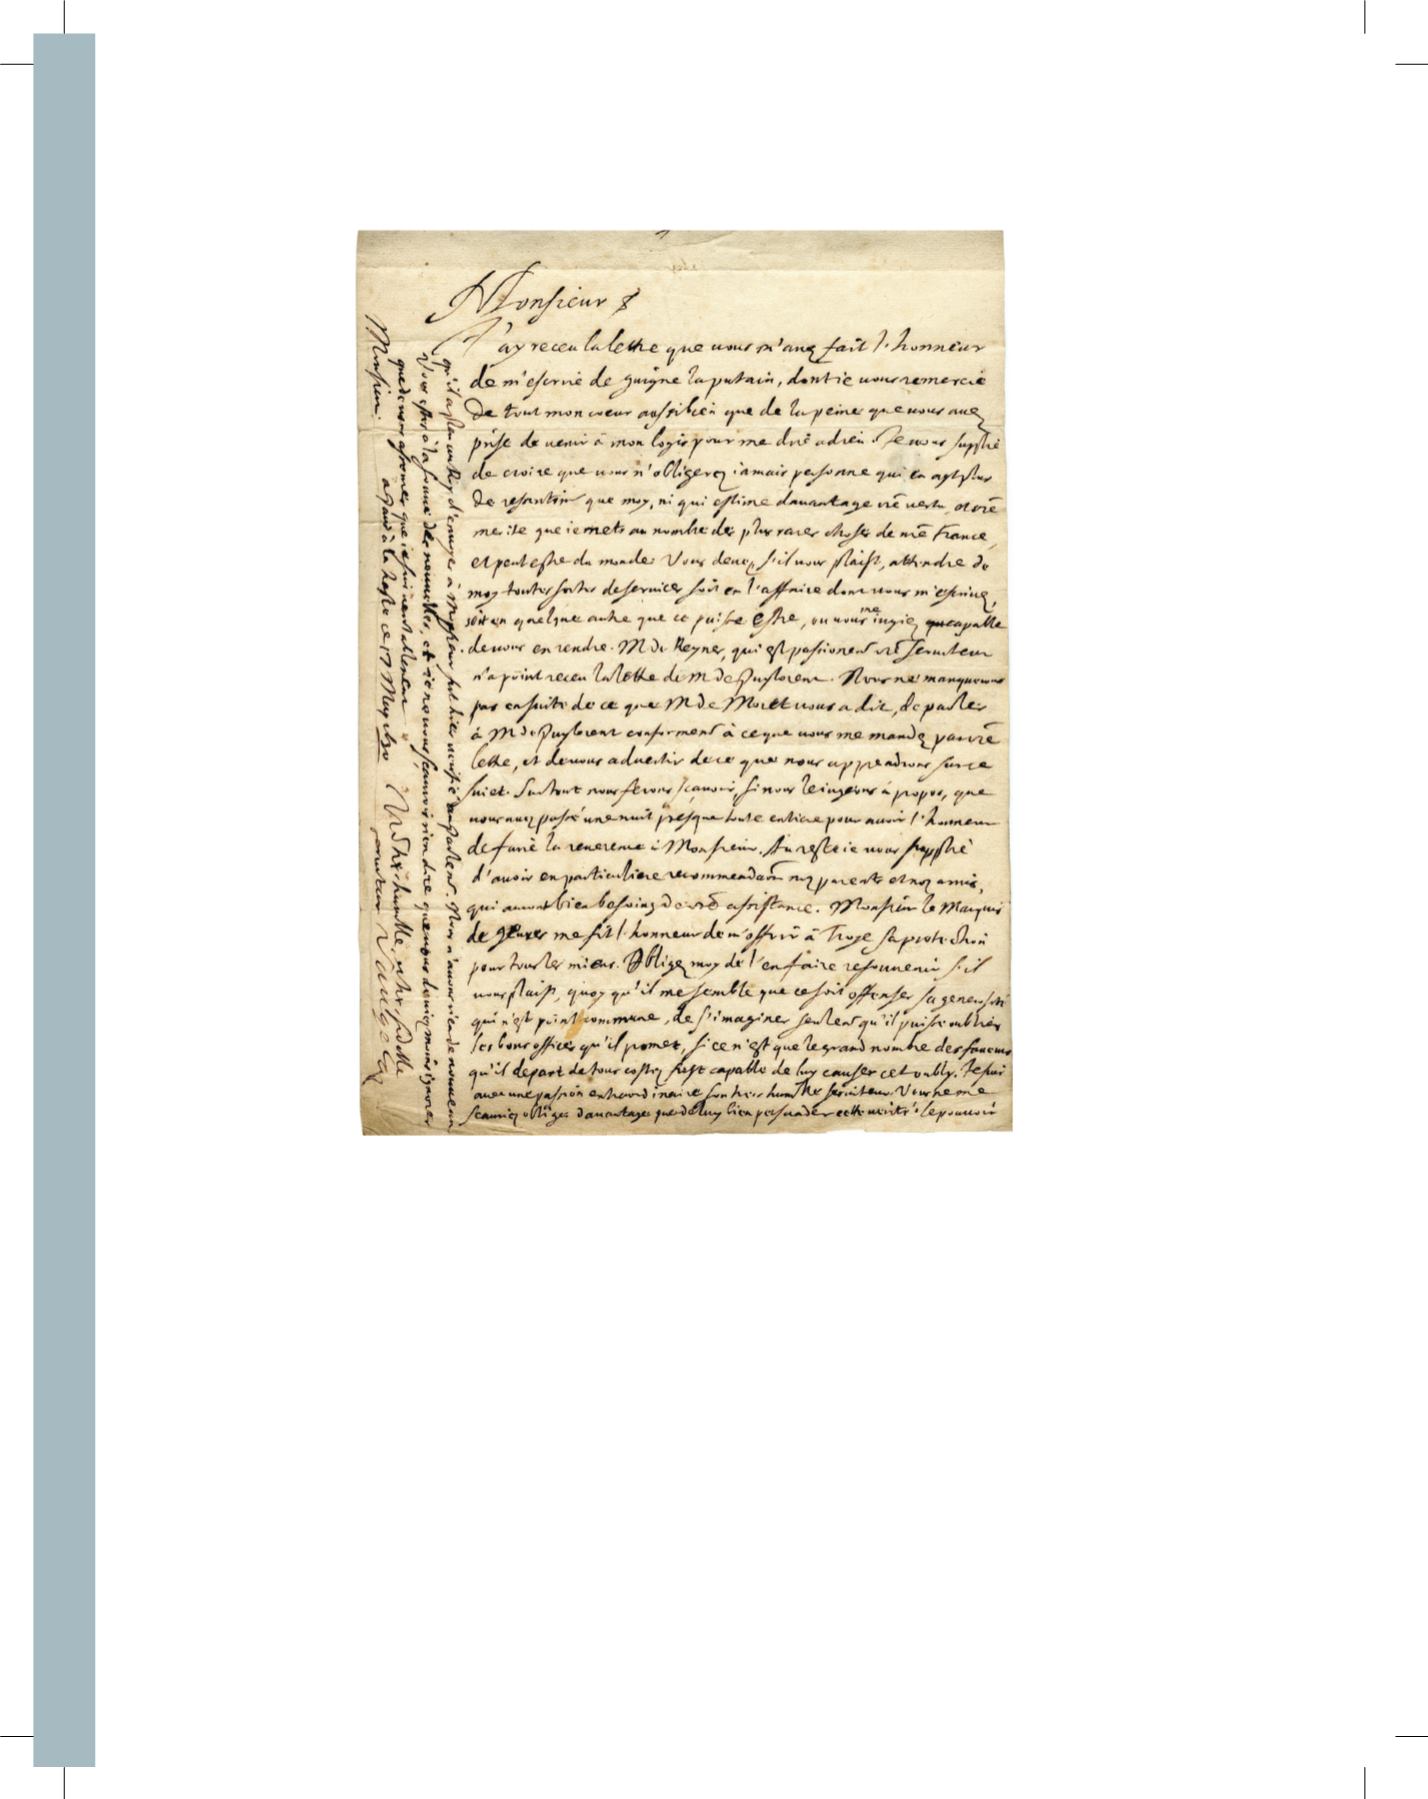 Monsieur
J'ay receu la lettre que vous m'auez fait l'honneur
de m'escrire de guigne la putain, dont ie vous remercie
de tout mon coeur aussi bien que de la peine que vous auez
prise de venir à mon logis pour me dire adieu. Je vous supplie
de croire que vous n'obligerez iamais personne qui en ayt plus
de resentim que moy, ni qui estime dauantage vre vertu, et vre
merite que ie mets au nombre des plus rares choses de nre France,
et peut estre du monde. Vous deuez, s'il vous plaist, attendre de
moy toutes sortes de seruices soit en l'affaire dont vous m'escriuez,
soit en quelque autre que ce puisse estre, ou vous me iugiez capable
de vous en rendre. M de Reyner, qui est passionem vre seruiteur
n'a point receu la lettre de m de Puylorent. Nous ne manquerons
pas en suite de ce que M de Moret vous a dit, de parler
à M de Puylorent conformem à ce que vous me mandez par vre
lettre, et de vous aduertir de ce que nous apprendrons sur ce
suiet. Surtout nous ferons sçauoir, si nous le iugeons à propos, que
vous auez passé une nuit presque toute entiere pour auoir l'honneur
de faire la reuerence à Monsieur. Au reste ie vous supplie
d'auoir en particuliere recommendaon nos parents et nos amis,
qui auront bien besoing de vre assistance. Monsieur le Marquis
de me fit l'honneur de m'offrir à Troye sa protection
pour tous les miens. Obligez moy de l'en faire resouuenir s'il
vous plaist, quoy qu'il me semble que ce soit offenser sa generosité
qui n'est point commune, de s'imaginer seulem qu'il puisse oublier
les bons offices qu'il promet, si ce n'est que le grand nombre des faueurs
qu'il depart de tous costez fust capable de luy causer cet oubly. Je suis
auec une passion extraordinaire son tres humble seruiteur. Vous ne me
scauriez obliger dauantage que de luy bien persuader cette verité. Le pouuoir
qu'il a plu au Roy d'enuoyer à Monsieur fut hier verifié au Parlem. Nous n'auons rien de nouueau
Vous estes à la source des nouuelles, et ie ne vous sçaurois rien dire que vous deuiez moins ignorer
que de vous asseurer que ie suis veritablement
Monsieur.
à la haste ce 17 May 1630
Vre tres humble, et tres fidelle
seruiteur Vaugelas